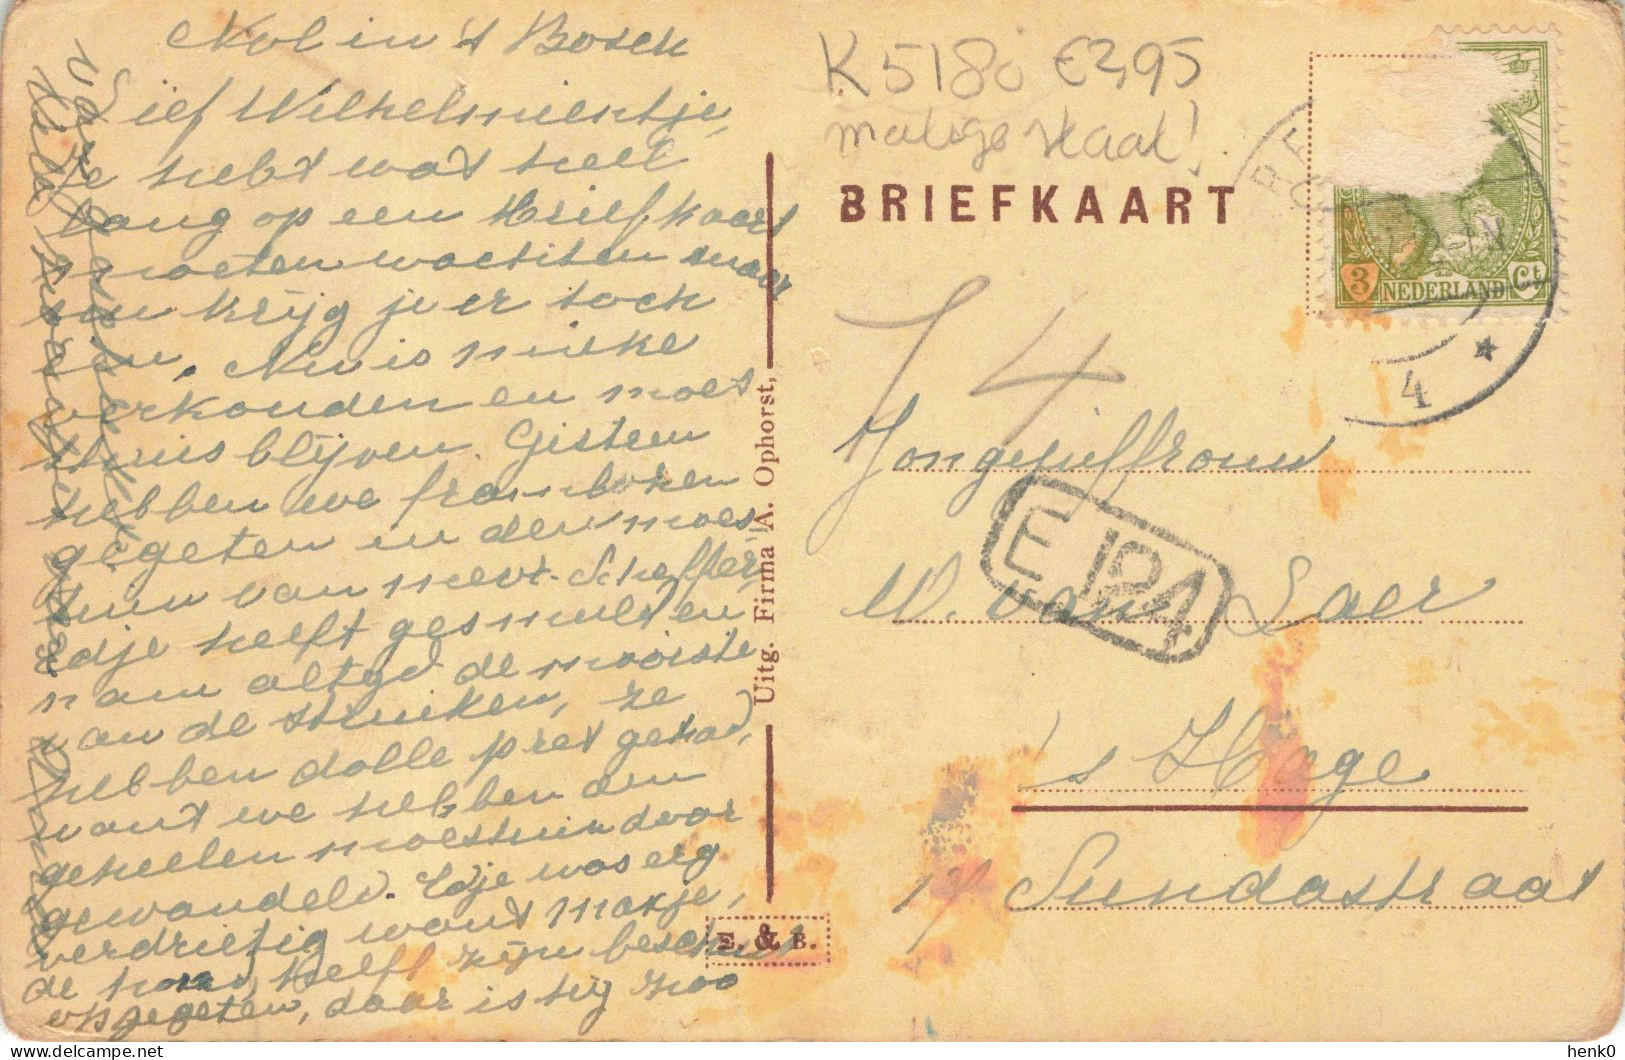 in 't Bosch
Lief Wilhelmientje,
Je hebt wat heel
lang op een briefkaart
moeten wachten maar
nu krijg je er toch
een. Nu is mieke
verkouden en moet
thuis blijven. Gisteren
hebben we frambozen
gegeten in den moes
tuin van mevr. Scheffer
Edje heeft gesmuld en
nam altijd de mooiste
van de struiken, ze
hebben dolle pret gehad,
want we hebben den
geheelen moestuin door
gewandeld. Edje was erg
verdrietig want
de heeft zijn beschuit
opgegeten, daar is hij zoo
K 5180 €2,95
matige staat!
BRIEFKAART
3 NEDERLAND Ct
4
T 4
Jongejuffrouw
E 124
W. van Laer
's Hage
17 Sundastraat
Uitg. Firma A. Ophorst,
E. & B.
henk0